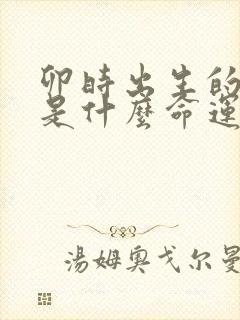 卯時出生的
是什麼命運
湯姆奧戈尔曼